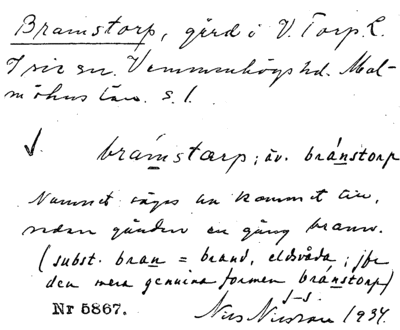 Bramstorp, gård i V. Torp. L.
Isie sn. Vemmenhögs hd. Mal-
möhus län. s. 1.
bramstorp; äv. bránstorp
Namnet säges ha kommit till,
sedan gården en gång brann.
(subst. bran = brand, eldsvåda; jfr
den mera genuina formen bránstorp)
Nr 5867.
Nils Nilsson 1934.